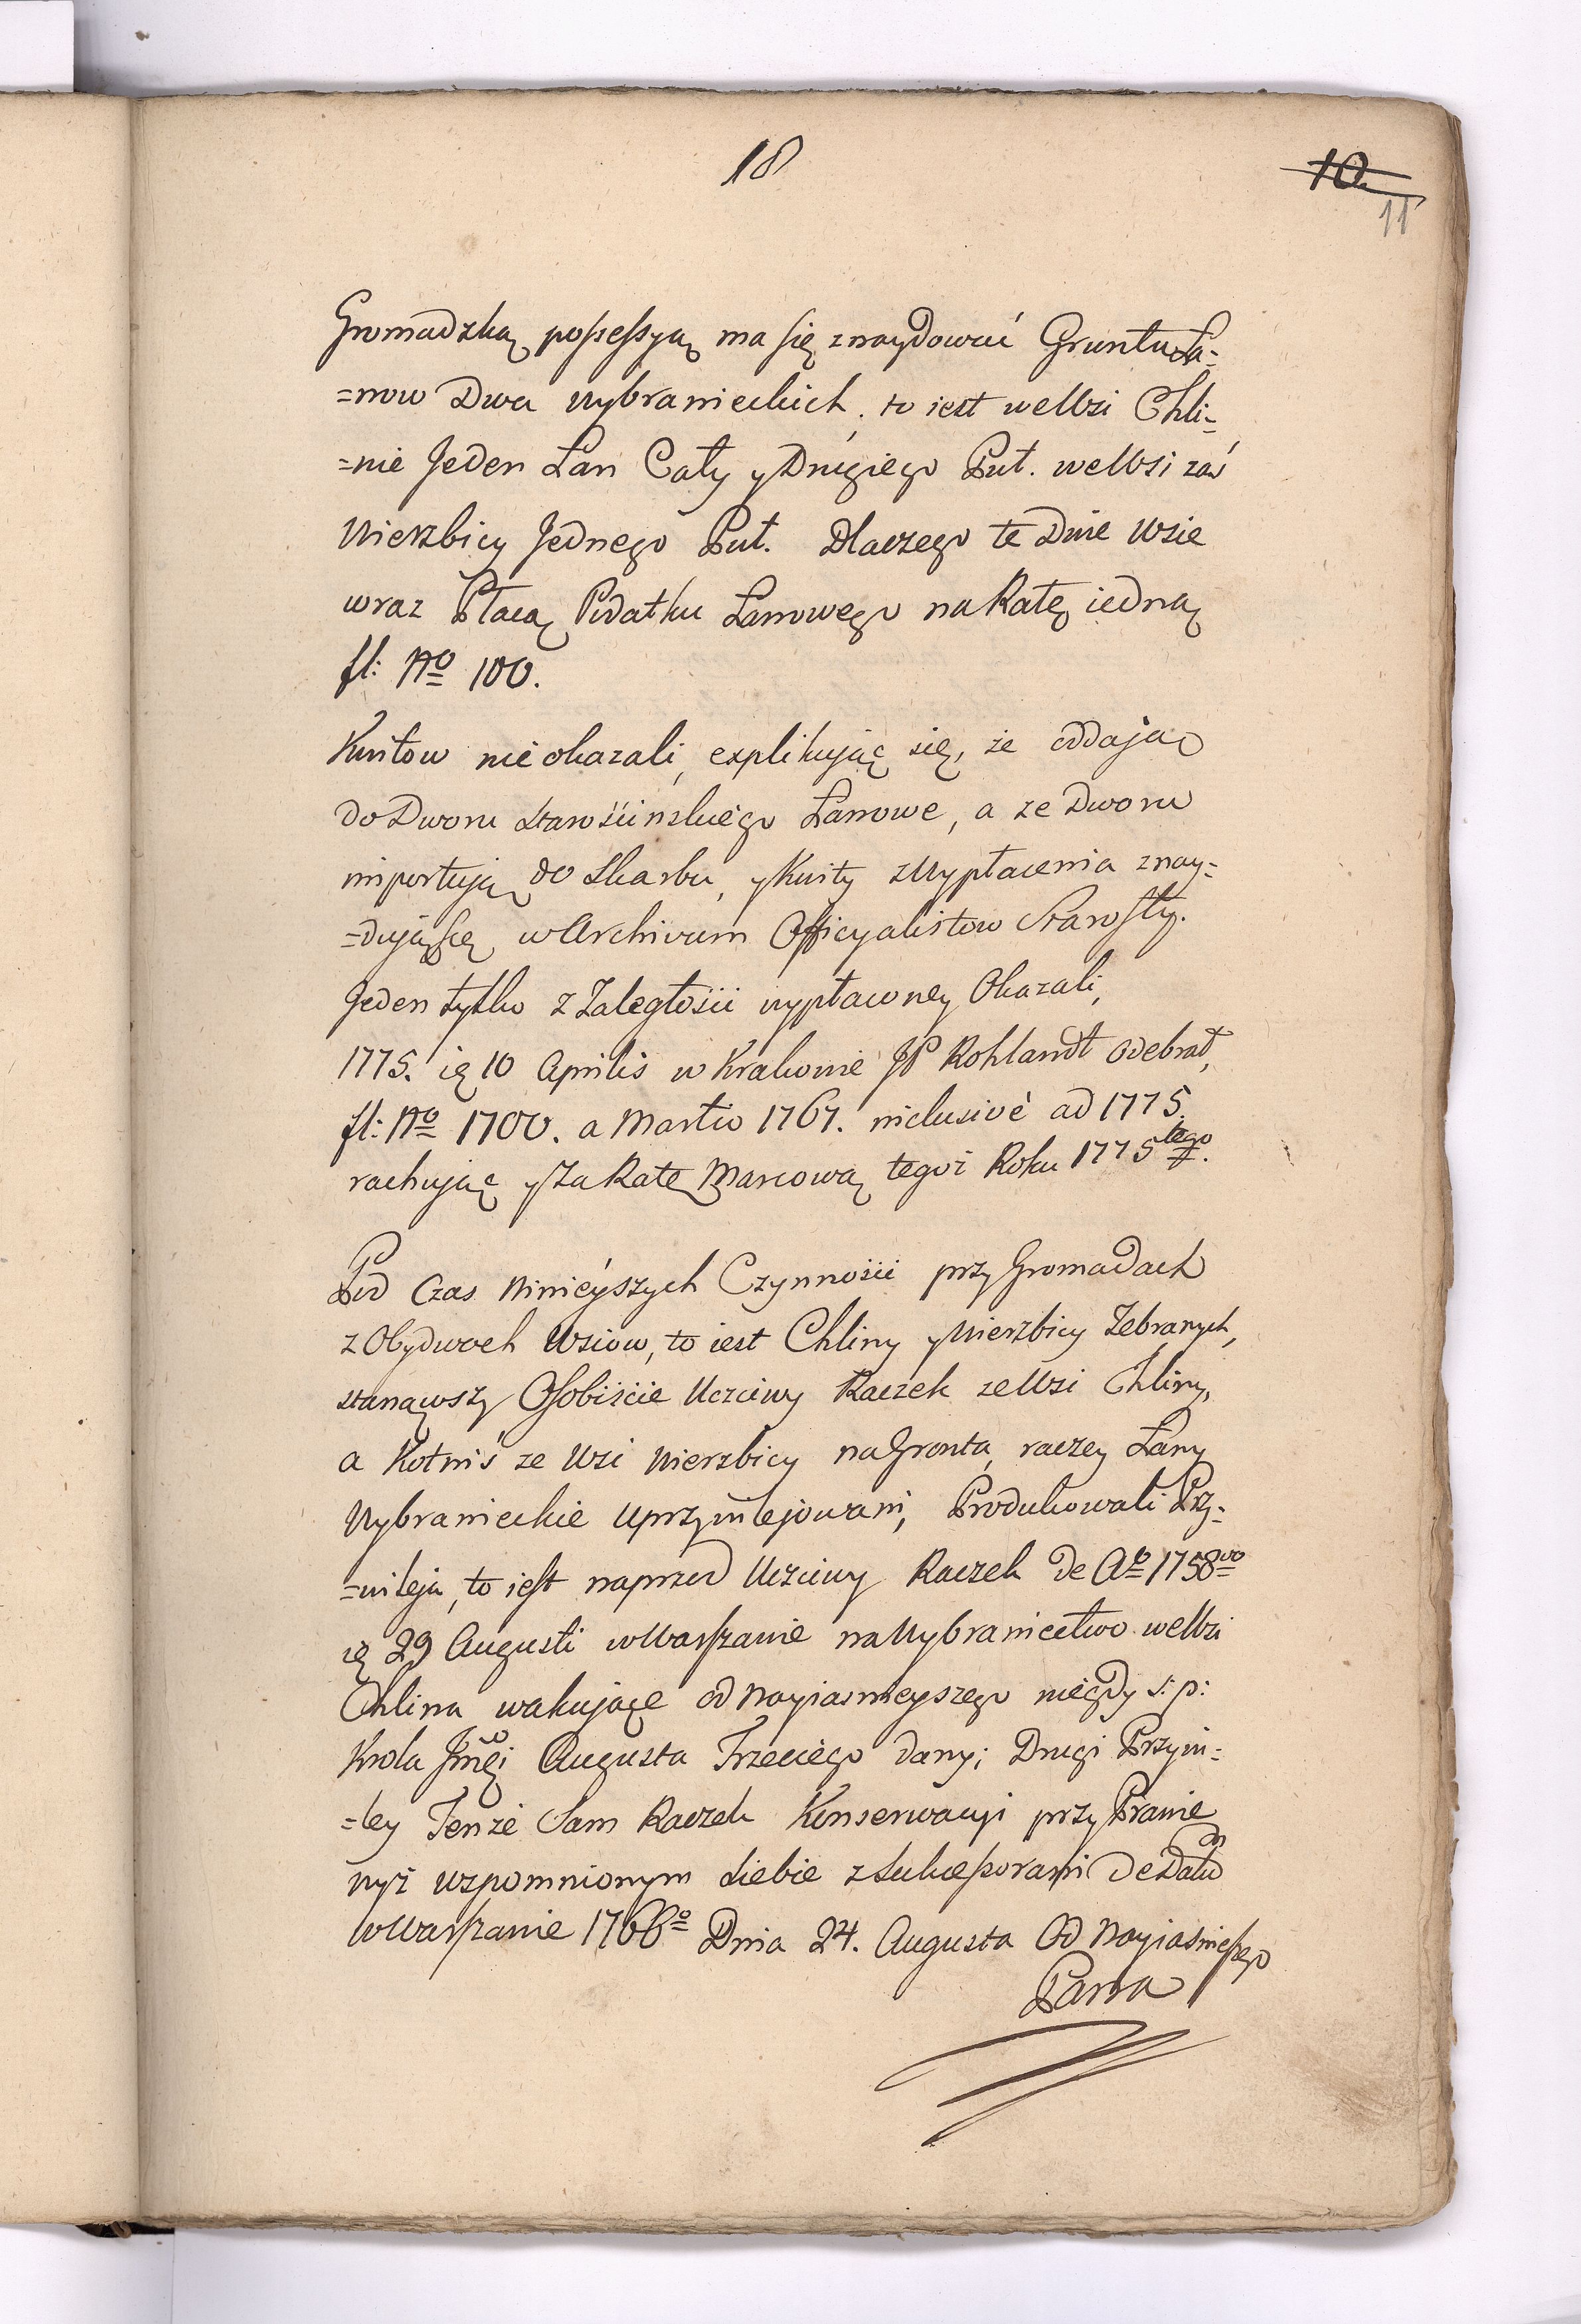 18
10.
11
Gromadzką possessyą ma się znaydować Gruntu Ła=
=now Dwa wybranieckich, to iest we Wsi Chli=
=nie Jeden Łan Cały y Drugiego Puł. we Wsi zaś
Wierzbicy Jednego Puł. Dlaczego te Dwie Wsie
wraz Płacą Podatku Łanowego na Ratę iedną
fl: No 100.
Kwitow nie okazali, explikując się, że oddając
do Dworu Starościńskiego Łanowe, a ze Dworu
importują do Skarbu, y Kwity z Wypłacenia znay=
=dują się w Archivum Officyalistow Starosty.
Jeden tylko z Zaległości wypłaconey Okazali,
1775. ię 10 Aprilis w Krakowie JP Rohlandt odebrał,
fl: No 1700. a Martio 1767. inclusivè ad 1775.
rachując y za Ratę Marcową tegoż Roku 1775tego.
Pod Czas Ninieyszych Czynności przy Gromadach
z Obydwoch Wsiow, to iest Chliny y Wierzbicy Zebranych,
stanąwszy Osobiście Uczciwy Raczek ze Wsi Chliny,
a Kotniś ze Wsi Wierzbicy na Gronta, raczey Łany
Wybranieckie uprzywilejowani, Produkowali Przy=
=wileja, to iest naprzod Uczciwy Raczek de Ao 1758vo
ię 29 Augusti w Warszawie na Wybraniectwo we Wsi
Chlina wakujące od Nayiasnieyszego niegdy s: p:
Krola Jmci Augusta Trzeciego dany; Drugi Przywi=
=ley Tenże Sam Raczek Konserwacyi przy Prawie
wyż wzpomnionym Siebie z Sukcessorami de Datto
w Warszawie 1766o Dnia 24. Augusta Od Nayiasnieszego
Pana